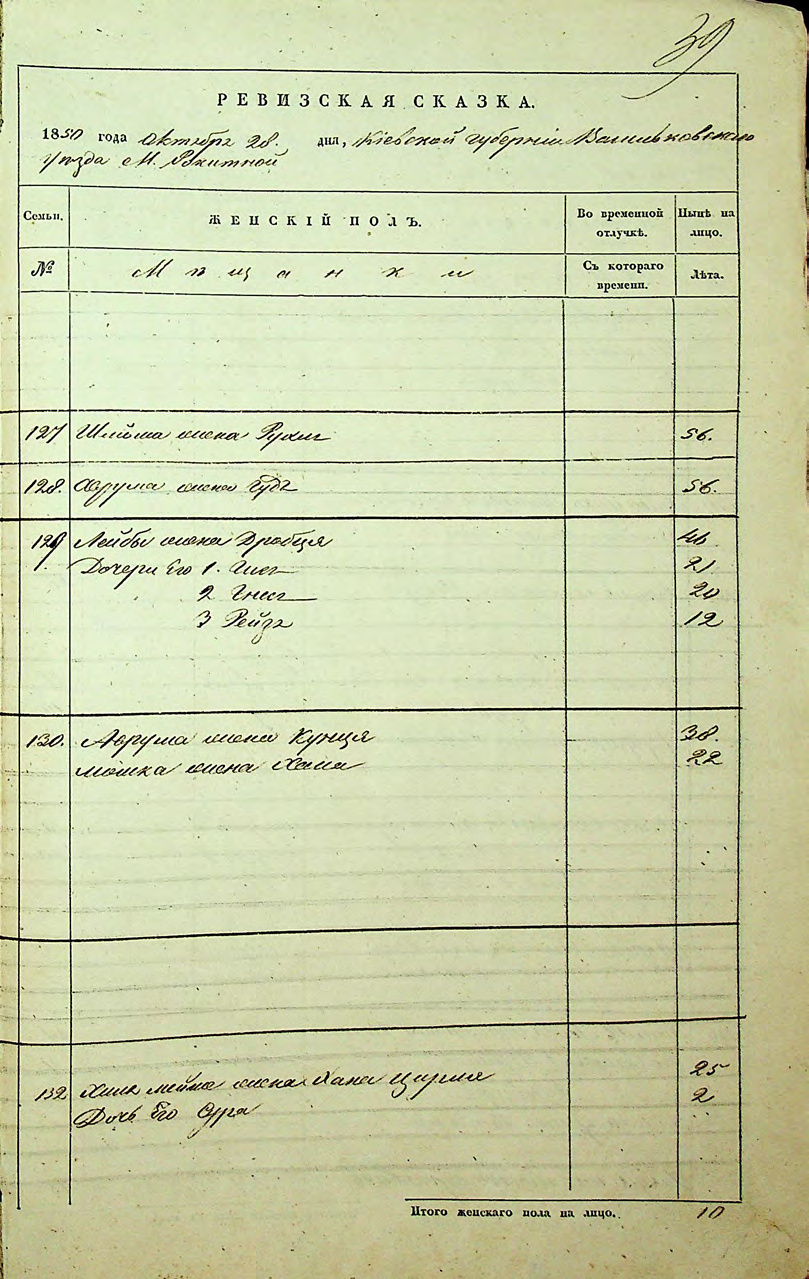 39
РЕВИЗСКАЯ СКАЗКА.
1850 года Октября 28. дня, Кіевской губерніи Васильковскаго
уѣзда М. Рокитной
Семьи. ЖЕНСКІЙ ПОЛЪ. Во временной отлучкѣ. Нынѣ на лицо.
№ Мѣщанки Съ котораго времени. Лѣта.
127 Шлйома жена Рухля 56.
128. Аврума жена 56.
129 Лейбы жена Дробця 46
Дочери Его 1. 21
2 Гнеся 20
3 Рейзя 12
130. Аврума жена Кунця 38.
Мошка жена Хана 22
132 жена Хана Цирля 25
Дочь Его Сура 2
Итого женскаго пола на лицо. 10